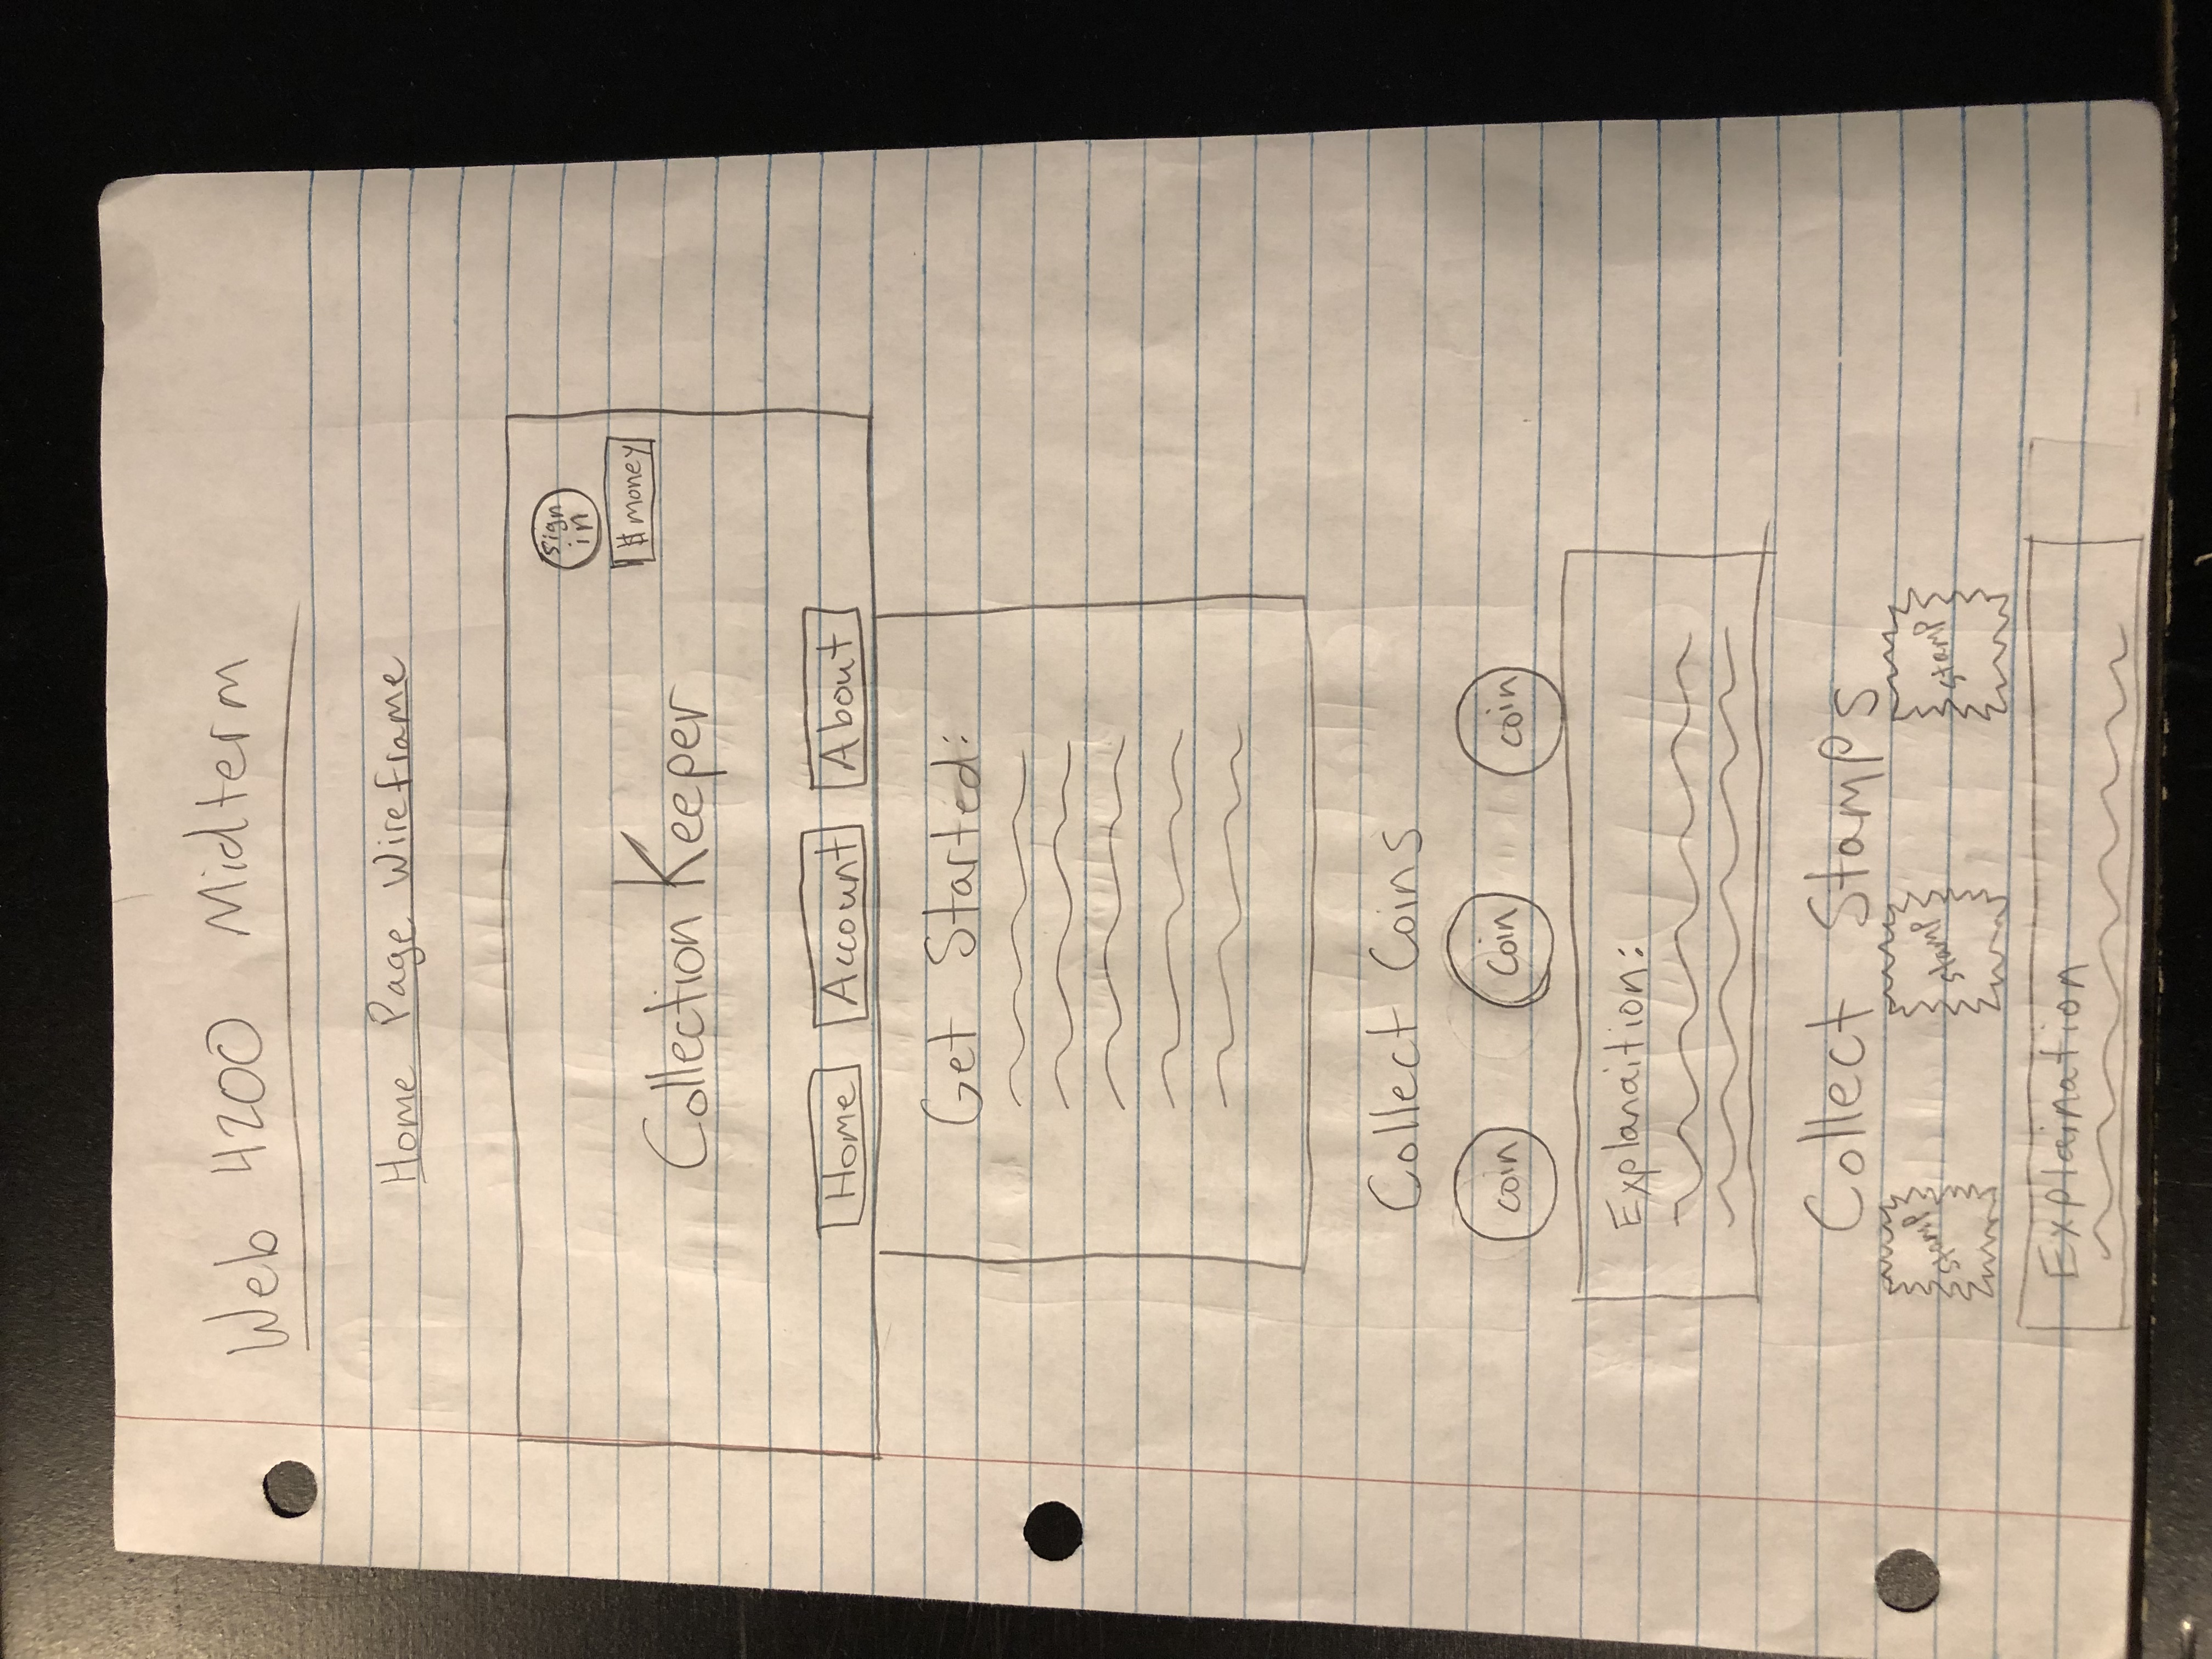 Web 4200 Midterm
Home Page Wireframe
sign
in
$ money
Collection Keeper
Home Account About
Get Started:
Collect Coins
coin Coin coin
Explanaition:
Collect Stamps
stamp stamp stamp
Explaination